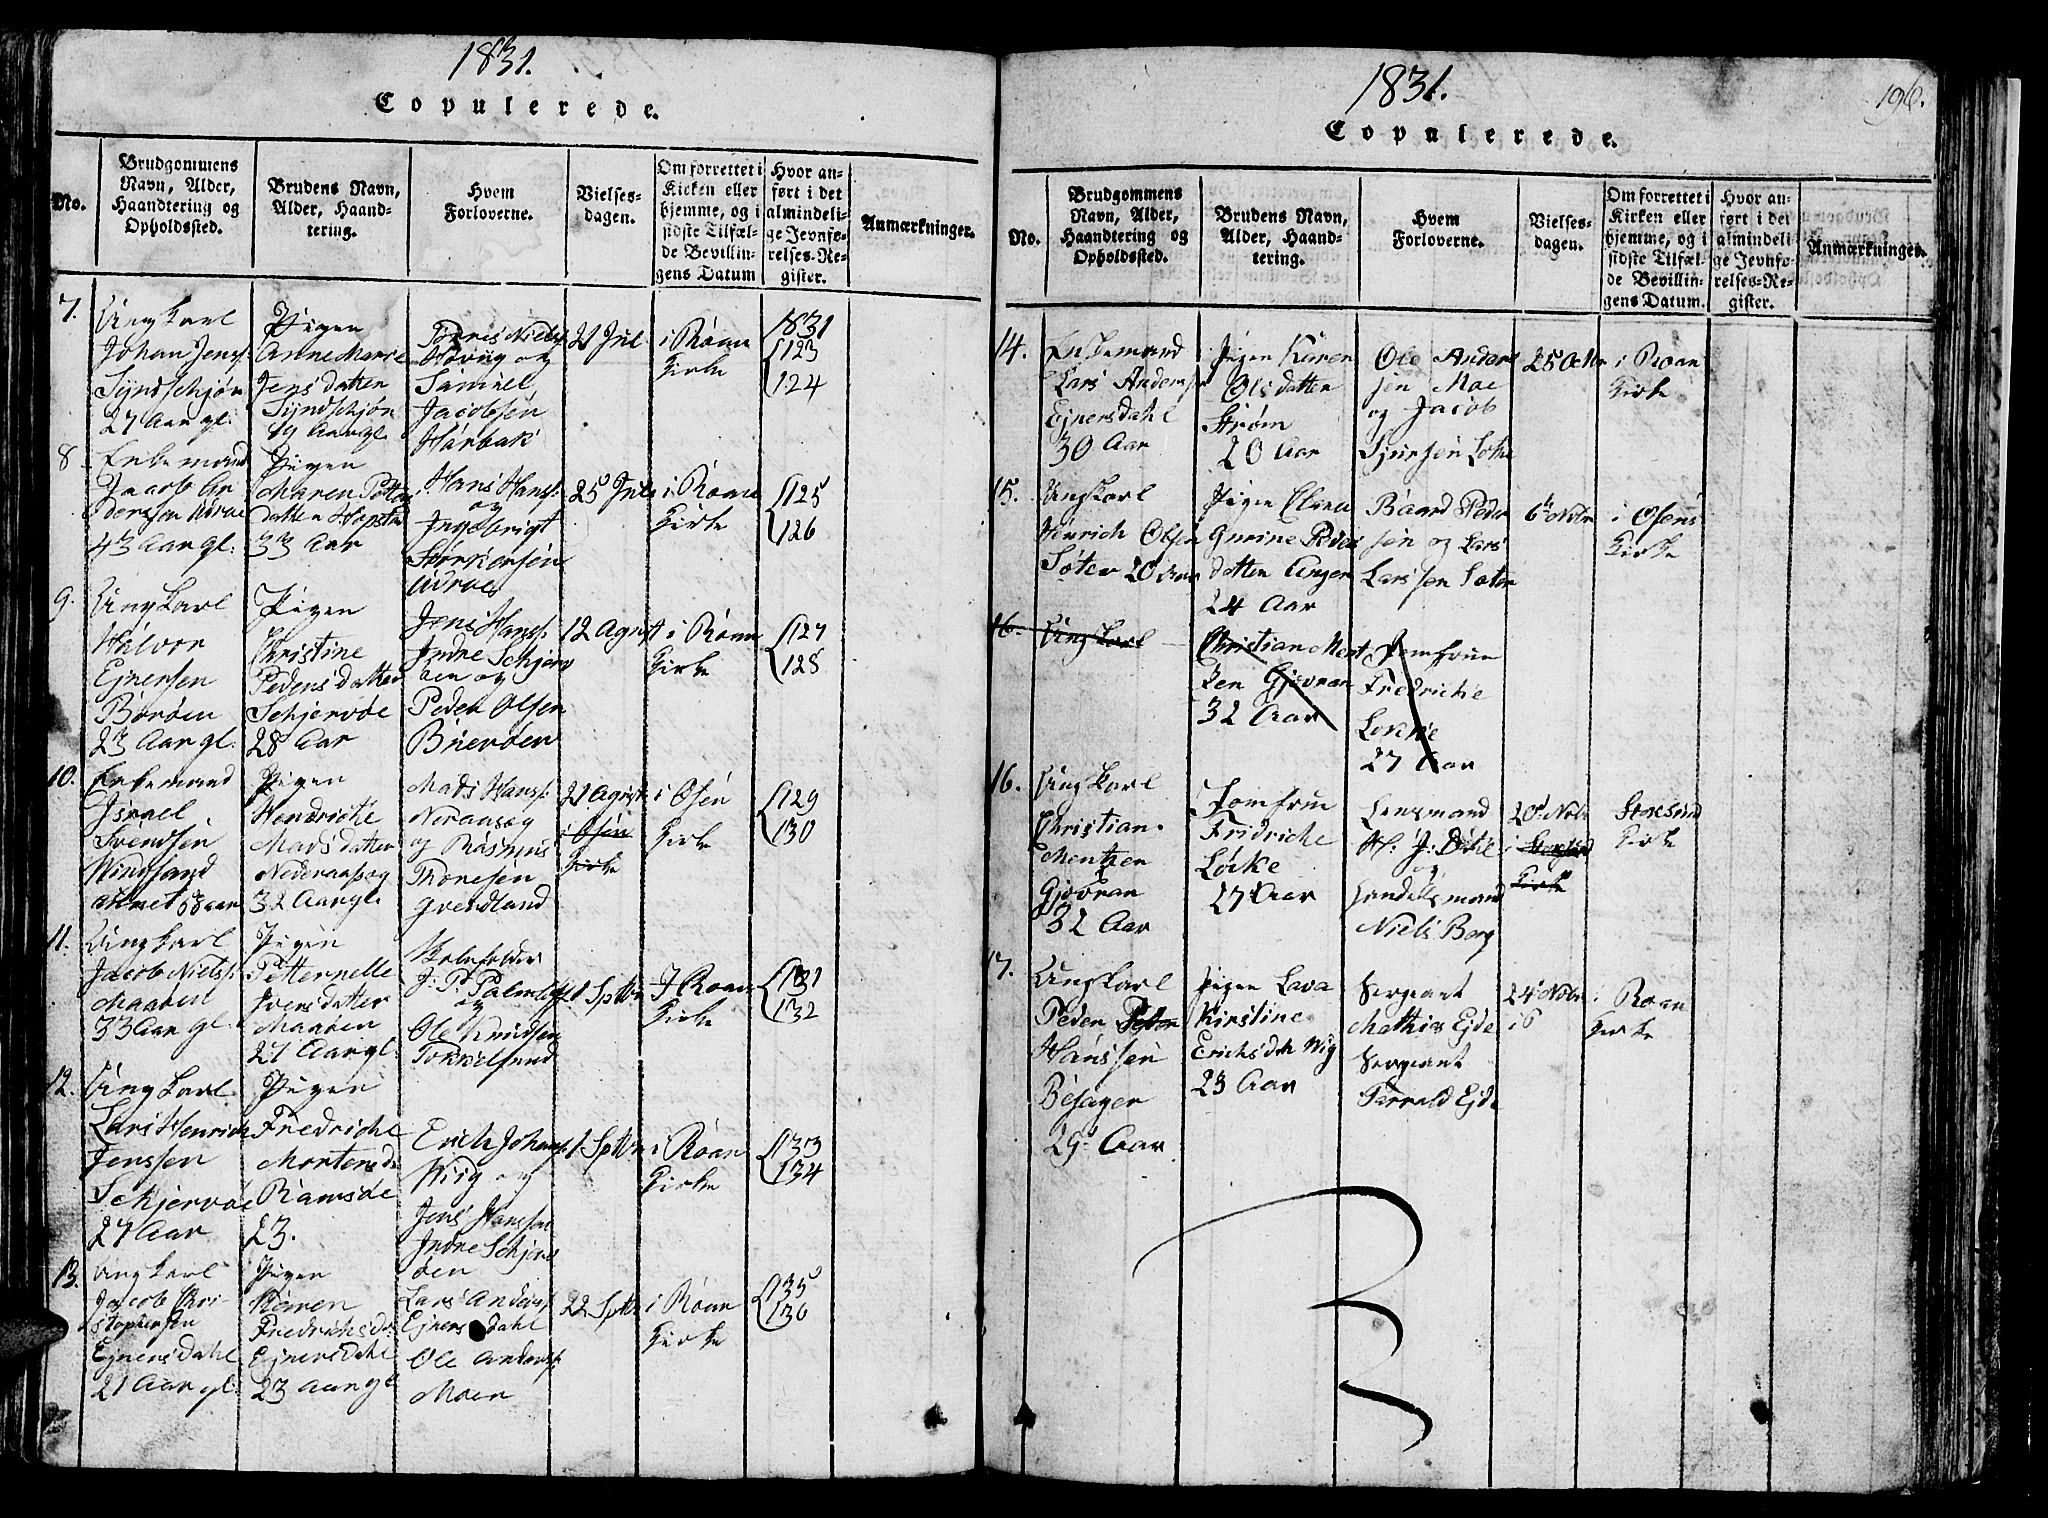 1831.
Copulerede.
No.
Brudgommens
Navn, Alder,
Haandtering og
Opholdssted.
Brudens Navn,
Alder, Haand-
tering.
Hvem
Forloverne.
Vielses-
dagen.
Om forrettet i
Kirken eller
hjemme, og i
sidste Tilfæl-
de Bevillin-
gens Datum
Hvor an-
ført i det
almindeli-
ge Jevnfø-
relses-Re-
gister.
Anmærkninger.
7.
Ungkarl
Johan Jenss:
Syndschjør
27 Aar gl.
Pigen
Anne Marie
Jens datten
Syndschjør
19 Aar gl.
Tørris Niels
Hovug og
Samuel
Jacobsen
Harbak
21 Jul
i Roan
Kirke
1831
123
124
8
Enkemand
Jacob An
dersen
43 Aar gl.
Pigen
Maren Petter
datten Hopstr
33 Aar
Hans Hanss:
og
Ingebrigt
Størkersen
25 Jul
i Roan
Kirke
125
126
9.
Ungkarl
Halvor
Ejnersen
Borøen
23 Aar gl.
Pigen
Christine
Peders datter
Schjervøe
28 Aar
Jens Hanss:
Indre Schjerv
øen og
Peder Olsen
12 Agust
i Roan
Kirke
127
128
10.
Enkemand
Israel
Svendsen
Wingsand
68 aar
Pigen
Hendriche
Mads datter
32 Aar gl.
Mads Hanss:
og Rasmus
Thoresen
21 Agust
i Osen
Kirke
i Osen
Kirke
129
130
11.
Ungkarl
Jacob Nielss:
Maaøen
33 Aar gl.
Pigen
Petternelle
Ivers datter
Maaøen
27 Aar gl.
Skoleholder
J: P: Palm
og
Ole Knudsen
1 Sptbr
I Roan
Kirke
131
132
12.
Ungkarl
Lars Henrich
Jenssen
Schjervøe
27 Aar
Pigen
Fredriche
Mortensda
Ramsøe
23.
Erich Johans
Wiig og
Jens Hanssen
Indre Schjerv
øen
1 Sptbr
i Roan
Kirke
133
134
13.
Ungkarl
Jacob Chri-
stophersen
Ejnersdahl
21 Aar gl.
Pigen
Karen
Fredrichsda
Ejnersdahl
23 Aar gl
Lars Anderss:
Ejnersdahl
Ole Anderss:
Moen
22 Sptbr
i Roan
Kirke
135
136
1831.
196.
Copulerede.
No.
Brudgommens
Navn, Alder,
Haandtering og
Opholdssted.
Brudens Navn,
Alder, Haand-
tering.
Hvem
Forloverne.
Vielses-
dagen.
Om forrettet i
Kirken eller
hjemme, og i
sidste Tilfæl-
de Bevillin-
gens Datum.
Hvor an-
ført i det
almindeli-
ge Jevnfø-
relses-Re-
gister.
Anmærkninger.
14.
Enkemand
Lars Andersen
Ejnersdahl
30 Aar
Pigen Karen
Ols datten
Strøm
20 Aar
Ole Ander
sen Moe
og Jacob
25 Octbr
i Roan
Kirke
15.
Ungkarl
Henrich Olsen
Sæter 20 Aar
Pigen Elen
Gurine Peders
datten Unger
24 Aar
Baard Peder
sen og Lars
Larssen Sæter
6te Novbr
i Osens
Kirke
16.
Ungkarl
Christian Ment
zen Gjøvran
32 Aar
Jomfrue
Fredriche
Løcke
27 Aar
16.
Ungkarl
Christian
Mentzen
Gjøvran
32 Aar
Jomfrue
Fridriche
Løcke
27 Aar
Lensmand
og
Handelsmand
Niels Berg
20de Novbr
i Stoksund
Kirke
Stoksund
Kirke
17.
Ungkarl
Peder Peter
Hanssen
Besager
29 Aar
Pigen Lava
Kirstine
Erichsdtr Wig
23 Aar
Sergeant
Mathias Ejde
Sergeant
Tarrald Ejde
24de Novbr
i Roan
Kirke